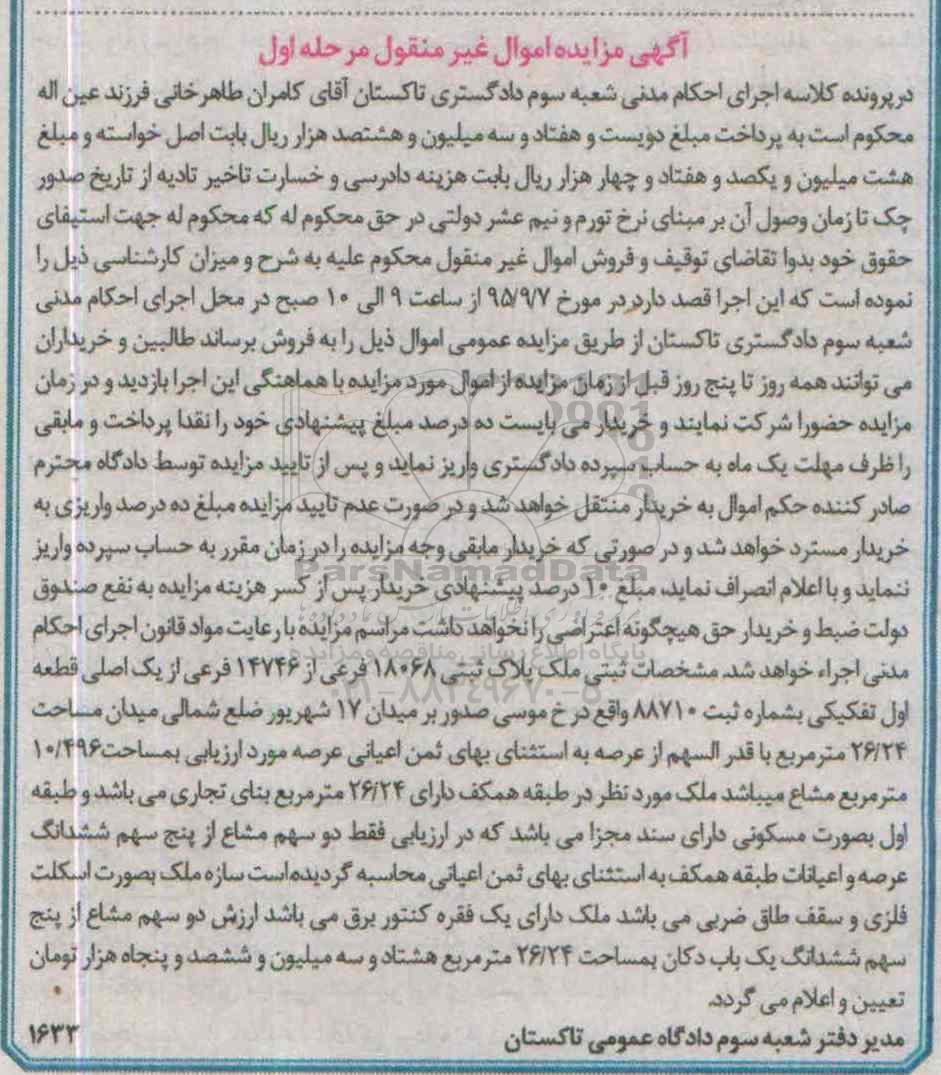 آگهی مزایده اموال غیر منقول مرحله اول
در پرونده کلاسه اجرای احکام مدنی شعبه سوم دادگستری تاکستان آقای کامران طاهرخانی فرزند عین اله
محکوم است به پرداخت مبلغ دویست و هفتاد و سه میلیون و هشتصد هزار ریال بابت اصل خواسته و مبلغ
هشت میلیون و یکصد و هفتاد و چهار هزار ریال بابت هزینه دادرسی و خسارت تاخیر تادیه از تاریخ صدور
چک تا زمان وصول آن بر مبنای نرخ تورم و نیم عشر دولتی در حق محکوم له که محکوم له جهت استیفای
حقوق خود بدوا تقاضای توقیف و فروش اموال غیر منقول محکوم علیه به شرح و میزان کارشناسی ذیل را
نموده است که این اجرا قصد دارد در مورخ ۹۵/۹/۷ از ساعت ۹ الی ۱۰ صبح در محل اجرای احکام مدنی
شعبه سوم دادگستری تاکستان از طریق مزایده عمومی اموال ذیل را به فروش برساند طالبین و خریداران
می توانند همه روز تا پنج روز قبل از زمان مزایده از اموال مورد مزایده با هماهنگی این اجرا بازدید و در زمان
مزایده حضورا شرکت نمایند و خریدار می بایست ده درصد مبلغ پیشنهادی خود را نقدا پرداخت و مابقی
را ظرف مهلت یک ماه به حساب سپرده دادگستری واریز نماید و پس از تایید مزایده توسط دادگاه محترم
صادر کننده حکم اموال به خریدار منتقل خواهد شد و در صورت عدم تایید مزایده مبلغ ده درصد واریزی به
خریدار مسترد خواهد شد و در صورتی که خریدار مابقی وجه مزایده را در زمان مقرر به حساب سپرده واریز
ننماید و یا اعلام انصراف نماید، مبلغ ۱۰ درصد پیشنهادی خریدار پس از کسر هزینه مزایده به نفع صندوق
دولت ضبط و خریدار حق هیچگونه اعتراضی را نخواهد داشت مراسم مزایده با رعایت مواد قانون اجرای احکام
مدنی اجراء خواهد شد. مشخصات ثبتی ملک پلاک ثبتی ۱۸۰۶۸ فرعی از ۱۴۷۴۶ فرعی از یک اصلی قطعه
اول تفکیکی بشماره ثبت ۸۸۷۱۰ واقع در خ موسی صدور بر میدان ۱۷ شهریور ضلع شمالی میدان مساحت
۲۶/۲۴ مترمربع با قدر السهم از عرصه به استثنای بهای ثمن اعیانی عرصه مورد ارزیابی بمساحت ۱۰/۴۹۶
مترمربع مشاع میباشد ملک مورد نظر در طبقه همکف دارای ۲۶/۲۴ مترمربع بنای تجاری می باشد و طبقه
اول بصورت مسکونی دارای سند مجزا می باشد که در ارزیابی فقط دو سهم مشاع از پنج سهم ششدانگ
عرصه و اعیانات طبقه همکف به استثنای بهای ثمن اعیانی محاسبه گردیده است سازه ملک بصورت اسکلت
فلزی و سقف طاق ضربی می باشد ملک دارای یک فقره کنتور برق می باشد ارزش دو سهم مشاع از پنج
سهم ششدانگ یک باب دکان بمساحت ۲۶/۲۴ مترمربع هشتاد و سه میلیون و ششصد و پنجاه هزار تومان
تعیین و اعلام می گردد.
مدیر دفتر شعبه سوم دادگاه عمومی تاکستان ۱۶۳۳
ParsNamadData
پایگاه اطلاع رسانی مناقصه و مزایده
۰۲۱-۸۸۳۴۹۶۷۰-۵